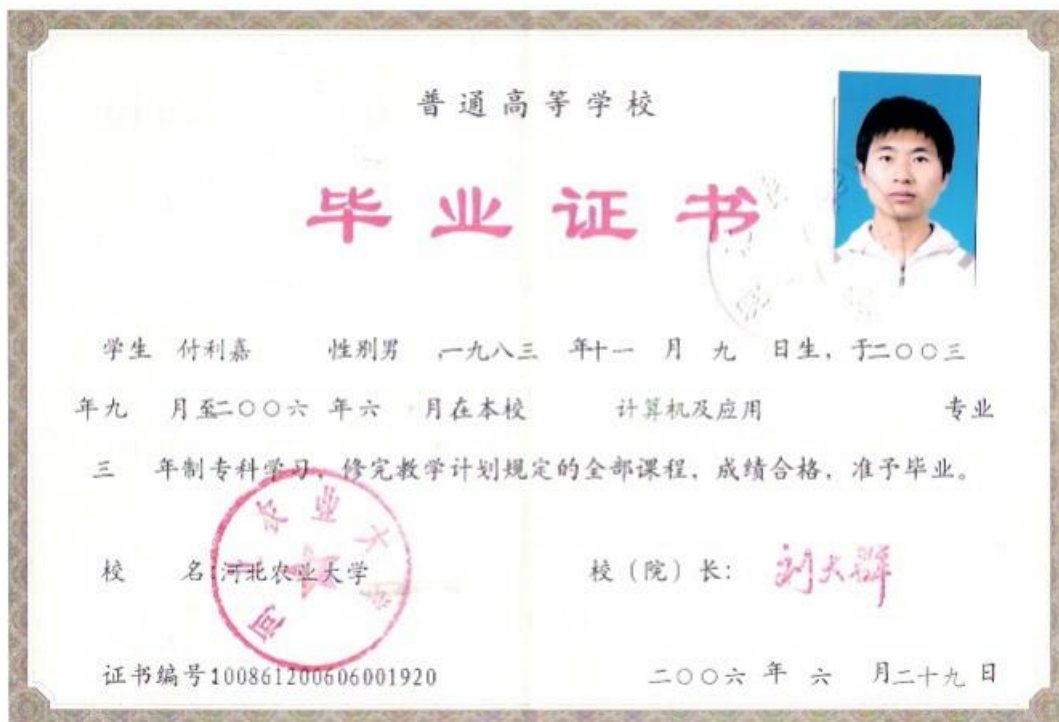 普通高等学校
毕业证书
学生 付利嘉 性别男 ,一九八三 年十一 月 九 日生，于二〇〇三
年九 月至二〇〇六 年六 月在本校 计算机及应用 专业
三 年制专科学习，修完教学计划规定的全部课程，成绩合格，准予毕业。
河北农业大学
校 名:河北农业大学 校（院）长： 刘大群
证书编号100861200606001920 二〇〇六 年 六 月二十九 日